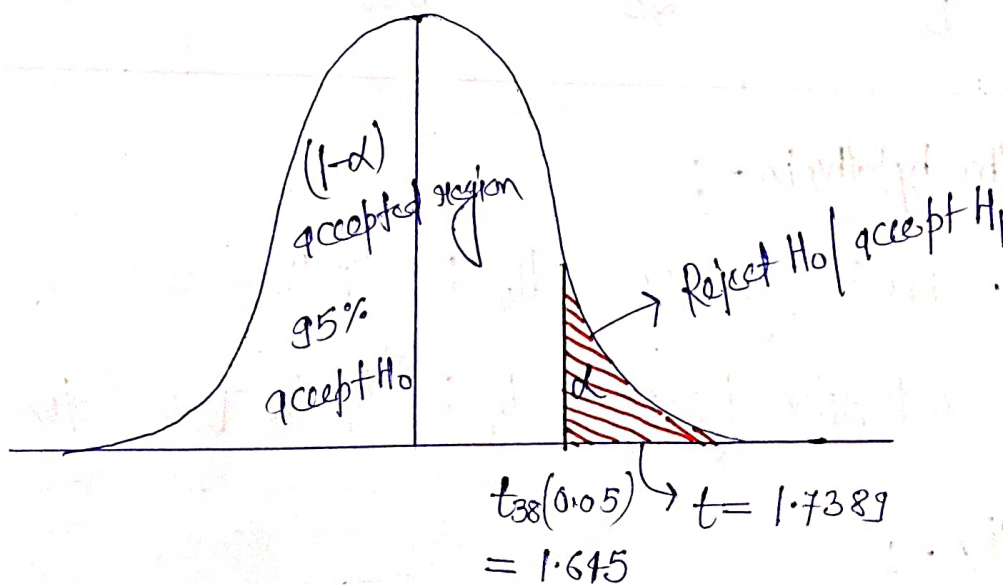 (1-α)
accepted region
95%
accept H₀
Reject H₀/ accept H₁
α
t₃₈(0.05) → t = 1.7389
= 1.645